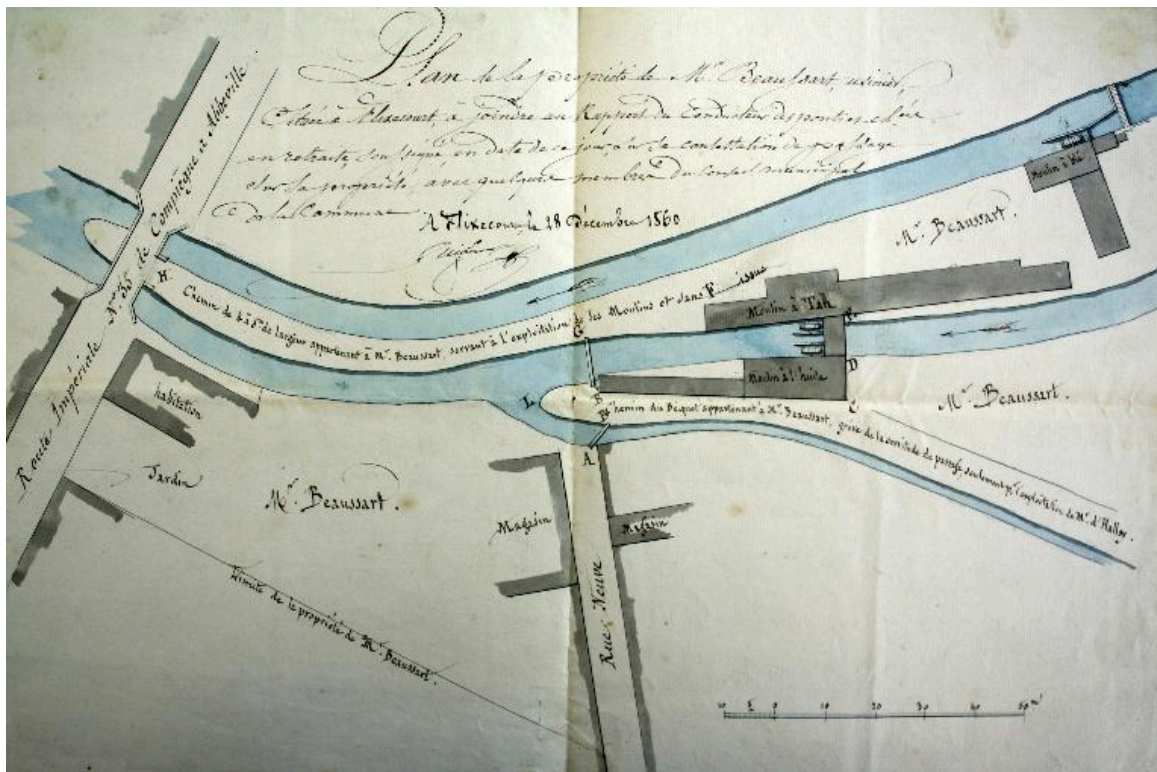 Plan de la propriété de Mr. Beaussart, usinier,
située à Flixecourt, à joindre au Rapport du Conducteur des ponts et ch.ées
en retraite, soussigné, en date de ce jour, sur la contestation de passage
sur sa propriété, avec quelques membres du Conseil municipal
de la Commune
A Flixecourt le 18 Décembre 1860
Route Impériale No. 35 de Compiègne à Abbeville.
Moulin à blé
Mr. Beaussart.
H.
Chemin de 4 à 6m de largeur appartenant à Mr. Beaussart, servant à l'exploitation de ses Moulins et sans issue
F
Moulin à Tan
G
D
Moulin à l'huile
habitation
L
B
C
Mr. Beaussart.
Chemin du Becquet appartenant à Mr. Beaussart, grevé de la servitude de passage, seulement pr. l'exploitation de Mr. d'Halloy.
A
Jardin
Mr. Beaussart.
Magasin
Magasin
Rue Neuve
Limite de la propriété de Mr. Beaussart.
10 5 0 10 20 30 40 50 m